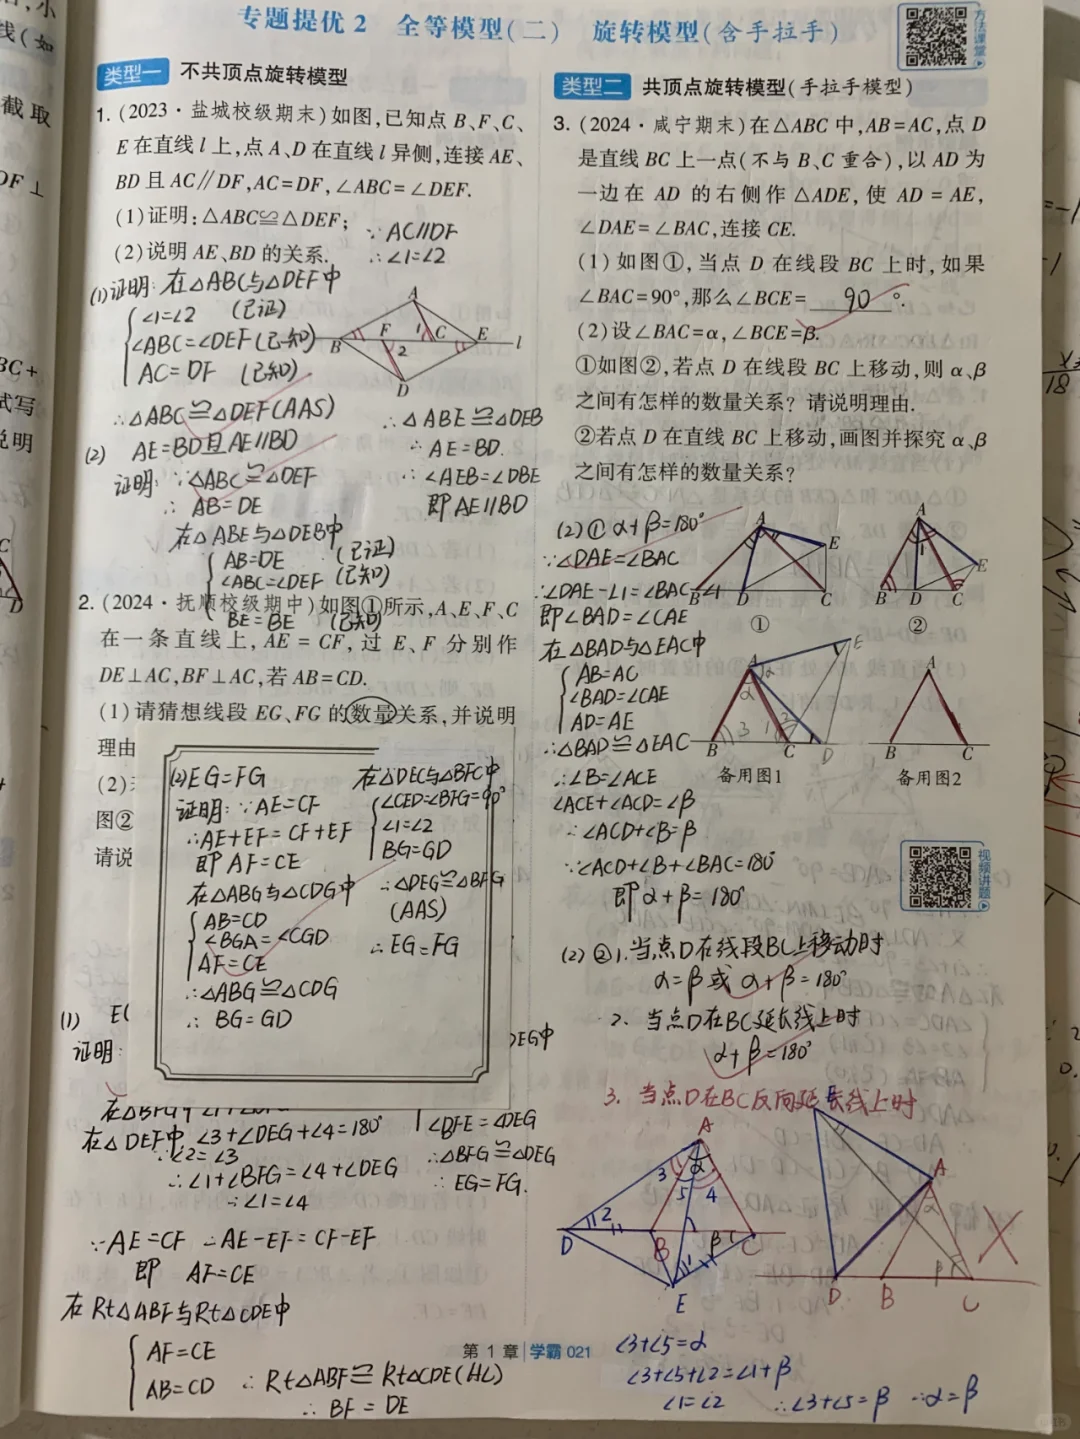 专题提优2 全等模型(二) 旋转模型(含手拉手)
方法课堂
类型一 不共顶点旋转模型
1. (2023·盐城校级期末)如图,已知点B、F、C、
E在直线l上,点A、D在直线l异侧,连接AE、
BD且AC∥DF,AC=DF,∠ABC=∠DEF.
(1)证明:△ABC≌△DEF;
∵AC∥DF
(2)说明AE、BD的关系.
∴∠1=∠2
(1)证明:在△ABC与△DEF中
∠1=∠2 (已证)
∠ABC=∠DEF(已知)
AC=DF (已知)
A
B F 1 C E l
2
D
∴△ABC≌△DEF(AAS)
(2) AE=BD且AE∥BD
证明:∵△ABC≌△DEF
∴AB=DE
在△ABE与△DEB中
AB=DE (已证)
∠ABC=∠DEF (已知)
BE=BE (已知)
∴△ABE≌△DEB
∴AE=BD.
∴∠AEB=∠DBE
即AE∥BD
2. (2024·抚顺校级期中)如图①所示,A、E、F、C
在一条直线上,AE=CF,过E、F分别作
DE⊥AC,BF⊥AC,若AB=CD.
(1)请猜想线段EG、FG的数量关系,并说明
理由
(2)
图②
请说
(2)EG=FG
证明:∵AE=CF
∴AE+EF=CF+EF
即AF=CE
在△ABG与△CDG中
AB=CD
∠BGA=∠CGD
AF=CE
∴△ABG≌△CDG
∴BG=GD
在△DEC与△BFC中
∠CED=∠BFG=90°
∠1=∠2
BG=GD
∴△DEG≌△BFG
(AAS)
∴EG=FG
(1)
证明:
DEG中
在△DEF中 ∠3+∠DEG+∠4=180°
∵∠2=∠3
∴∠1+∠BFG=∠4+∠DEG
∵∠1=∠4
∠BFE=∠DEG
∴△BFG≌△DEG
∴EG=FG.
∵AE=CF ∴AE-EF=CF-EF
即 AF=CE
在Rt△ABF与Rt△CDE中
AF=CE
AB=CD
∴Rt△ABF≌Rt△CDE(HL)
∴BF=DE
类型二 共顶点旋转模型(手拉手模型)
3. (2024·咸宁期末)在△ABC中,AB=AC,点D
是直线BC上一点(不与B、C重合),以AD为
一边在AD的右侧作△ADE,使AD=AE,
∠DAE=∠BAC,连接CE.
(1)如图①,当点D在线段BC上时,如果
∠BAC=90°,那么∠BCE= 90 °.
(2)设∠BAC=α,∠BCE=β.
①如图②,若点D在线段BC上移动,则α、β
之间有怎样的数量关系?请说明理由.
②若点D在直线BC上移动,画图并探究α、β
之间有怎样的数量关系?
(2)①α+β=180°
∵∠DAE=∠BAC
∴∠DAE-∠1=∠BAC-∠1
即∠BAD=∠CAE
在△BAD与△EAC中
AB=AC
∠BAD=∠CAE
AD=AE
∴△BAD≌△EAC
∴∠B=∠ACE
∠ACE+∠ACD=∠β
∴∠ACD+∠B=β
∵∠ACD+∠B+∠BAC=180°
即α+β=180°
A
E
B D C
①
A
1
E
B D C
②
E
A α
α
B 3 1 2 C D
备用图1
A
B C
备用图2
视频讲题
(2)②1.当点D在线段BC上移动时
α=β或α+β=180°
2. 当点D在BC延长线上时
α+β=180°
3. 当点D在BC反向延长线上时
A
3 α
5 4
2
D B β C
1
E
A
α
β
D B C
∠3+∠5=α
∠3+∠5+∠2=∠1+β
∠1=∠2 ∴∠3+∠5=β ∴α=β
第1章 学霸 021